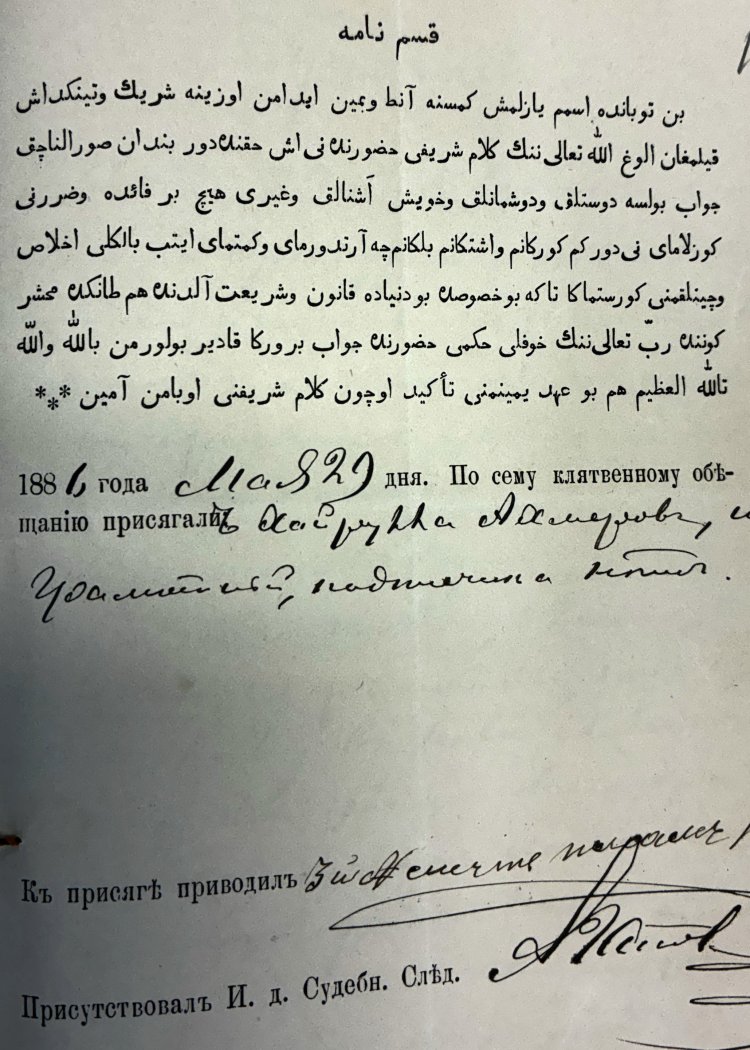 قسم نامه
بن توبانده اسمم يازلمش كمسنه آنط ويمين ايدامن اوزينه شريك وتينكداش
قيلمغان الوغ الله تعالى ننك كلام شريفى حضورنده نى اش حقنده دور بندان صورالناچق
جواب بولسه دوستلق ودوشمانلق وخويش آشنالق وغيرى هيچ بر فائده وضررنى
كوزلاماى نى دوركم كوركانم واشتكانم بلكانمچه آرتدورماى وكمتماى ايتب بالكلى اخلاص
وچينلقمنى كورستماكا تاكه بو خصوصده بو دنياده قانون وشريعت آلدنده هم طانكده محشر
كوننده ربّ تعالى ننك خوفلى حكمى حضورنده جواب بروركا قادير بولورمن بالله والله
تالله العظيم هم بو عهد يمينمنى تأكيد اوچون كلام شريفنى اوبامن آمين ***
1886 года Мая 29 дня. По сему клятвенному обѣ-
щанію присягалъ Хайрулла
неграмотный,
Къ присягѣ приводилъ
Присутствовалъ И. д. Судебн. Слѣд.